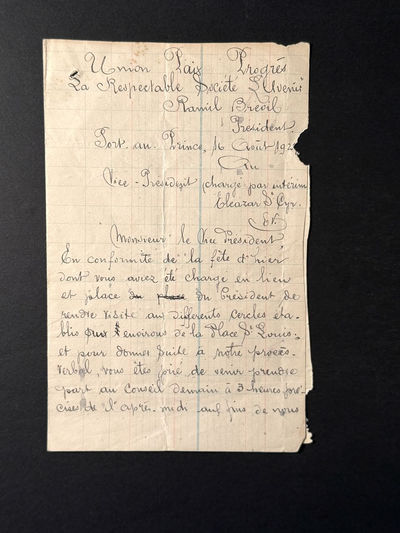 Union Paix Progrès
La Respectable Société L'Avenir
Ramil Brevil
Président
Port-au-Prince, 16 Août 192
Au
Vice-President chargé par intérim
Eleazar St Cyr.
Ev.
Monsieur le Vice Président
En conformité de la fête d'hier
dont vous aviez été chargé en lieu
et place du Président de
rendre visite aux differents cercles éta-
blis aux environs de la Place St Louis,
et pour donner suite à notre procès-
verbal, vous êtes prié de venir prendre
part au Conseil demain à 3 heures pré-
cises de l'après-midi aux fins de nous